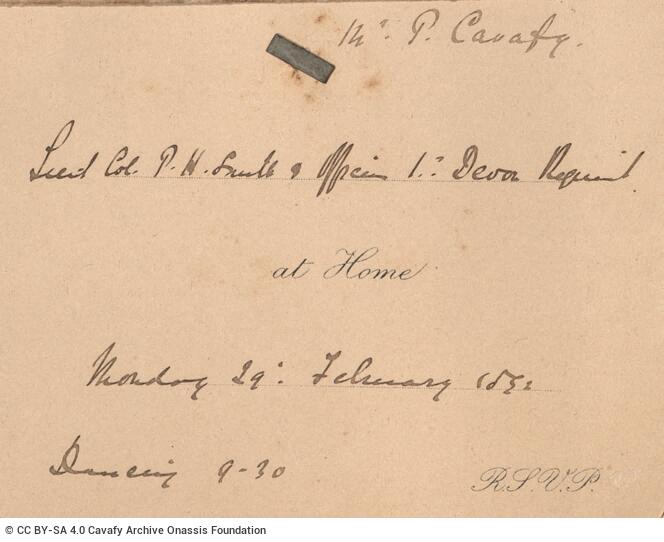 Mr. P. Cavafy.
Lieut Col. P. H. Smith & Officers 1st Devon Regiment
at Home
Monday 29th February 1892
Dancing 9-30
R.S.V.P.
© CC BY-SA 4.0 Cavafy Archive Onassis Foundation